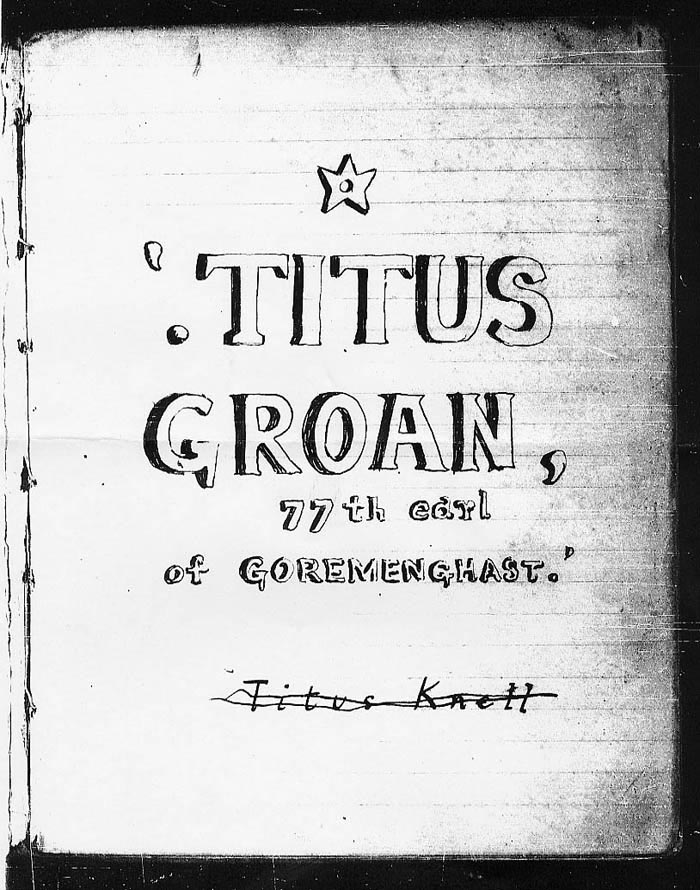 '. TITUS
GROAN,
77th earl
of GOREMENGHAST.'
Titus Knell